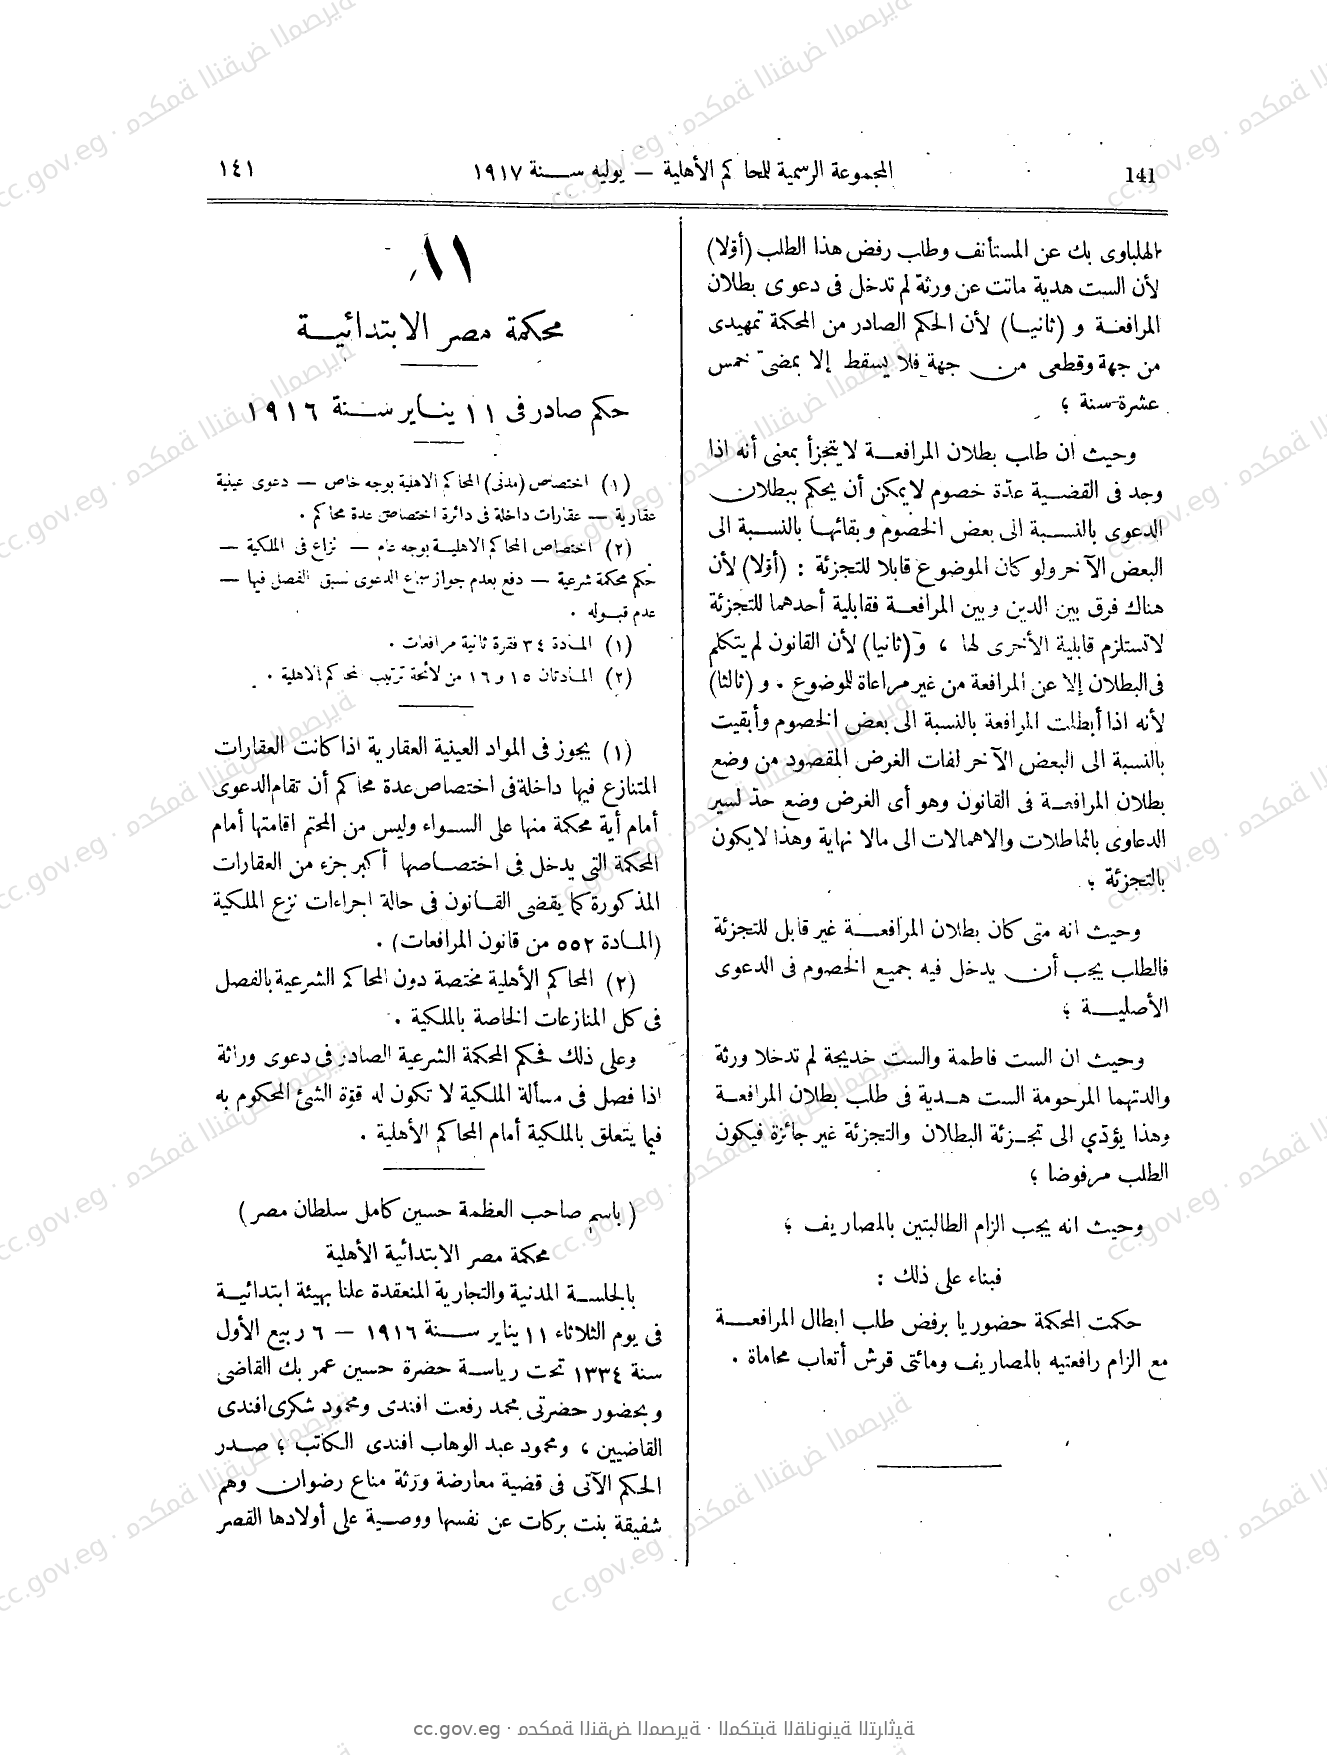 141
المجموعة الرسمية للمحاكم الأهلية — يوليه سنة ١٩١٧
١٤١
الهلباوى بك عن المستأنف وطلب رفض هذا الطلب (أوّلا)
لأن الست هدية ماتت عن ورثة لم تدخل فى دعوى بطلان
المرافعة و (ثانيا) لأن الحكم الصادر من المحكمة تمهيدى
من جهة وقطعى من جهة فلا يسقط إلا بمضىّ خمس
عشرة سنة ؛
وحيث ان طلب بطلان المرافعة لا يتجزأ بمعنى أنه اذا
وجد فى القضية عدّة خصوم لا يمكن أن يحكم ببطلان
الدعوى بالنسبة الى بعض الخصوم وبقائها بالنسبة الى
البعض الآخر ولو كان الموضوع قابلا للتجزئة : (أوّلا) لأن
هناك فرق بين الدين وبين المرافعة فقابلية أحدهما للتجزئة
لا تستلزم قابلية الأخرى لها ، و (ثانيا) لأن القانون لم يتكلم
فى البطلان إلا عن المرافعة من غير مراعاة للموضوع . و (ثالثا)
لأنه اذا أبطلت المرافعة بالنسبة الى بعض الخصوم وأبقيت
بالنسبة الى البعض الآخر لفات الغرض المقصود من وضع
بطلان المرافعة فى القانون وهو أى الغرض وضع حدّ لسير
الدعاوى بالمماطلات والاهمالات الى مالا نهاية وهذا لا يكون
بالتجزئة ؛
وحيث انه متى كان بطلان المرافعة غير قابل للتجزئة
فالطلب يجب أن يدخل فيه جميع الخصوم فى الدعوى
الأصلية ؛
وحيث ان الست فاطمة والست خديجة لم تدخلا ورثة
والدتهما المرحومة الست هدية فى طلب بطلان المرافعة
وهذا يؤدّي الى تجزئة البطلان والتجزئة غير جائزة فيكون
الطلب مرفوضا ؛
وحيث انه يجب الزام الطالبتين بالمصاريف ؛
فبناء على ذلك :
حكمت المحكمة حضوريا برفض طلب ابطال المرافعة
مع الزام رافعتيه بالمصاريف ومائتى قرش أتعاب محاماة .
١١
محكمة مصر الابتدائية
حكم صادر فى ١١ يناير سنة ١٩١٦
(١) اختصاص (مدنى) المحاكم الاهلية بوجه خاص — دعوى عينية
عقارية — عقارات داخلة فى دائرة اختصاص عدة محاكم .
(٢) اختصاص المحاكم الاهلية بوجه عام — نزاع فى الملكية —
حكم محكمة شرعية — دفع بعدم جواز سماع الدعوى لسبق الفصل فيها —
عدم قبوله .
(١) المادة ٣٤ فقرة ثانية مرافعات .
(٢) المادتان ١٥ و ١٦ من لائحة ترتيب المحاكم الاهلية .
(١) يجوز فى المواد العينية العقارية اذا كانت العقارات
المتنازع فيها داخلة فى اختصاص عدة محاكم أن تقام الدعوى
أمام أية محكمة منها على السواء وليس من المحتم اقامتها أمام
المحكمة التى يدخل فى اختصاصها أكبر جزء من العقارات
المذكورة كما يقضى القانون فى حالة اجراءات نزع الملكية
(المادة ٥٥٢ من قانون المرافعات) .
(٢) المحاكم الأهلية مختصة دون المحاكم الشرعية بالفصل
فى كل المنازعات الخاصة بالملكية .
وعلى ذلك فحكم المحكمة الشرعية الصادر فى دعوى وراثة
اذا فصل فى مسألة الملكية لا تكون له قوّة الشئ المحكوم به
فيما يتعلق بالملكية أمام المحاكم الأهلية .
( باسم صاحب العظمة حسين كامل سلطان مصر )
محكمة مصر الابتدائية الأهلية
بالجلسة المدنية والتجارية المنعقدة علنا بهيئة ابتدائية
فى يوم الثلاثاء ١١ يناير سنة ١٩١٦ — ٦ ربيع الأول
سنة ١٣٣٤ تحت رياسة حضرة حسين عمر بك القاضى
وبحضور حضرتى محمد رفعت افندى ومحمود شكرى افندى
القاضيين ، ومحمود عبد الوهاب افندى الكاتب ؛ صدر
الحكم الآتى فى قضية معارضة ورثة مناع رضوان وهم
شفيقة بنت بركات عن نفسها ووصية على أولادها القصر
cc.gov.eg · محكمة النقض المصرية · المكتبة القانونية التراثية